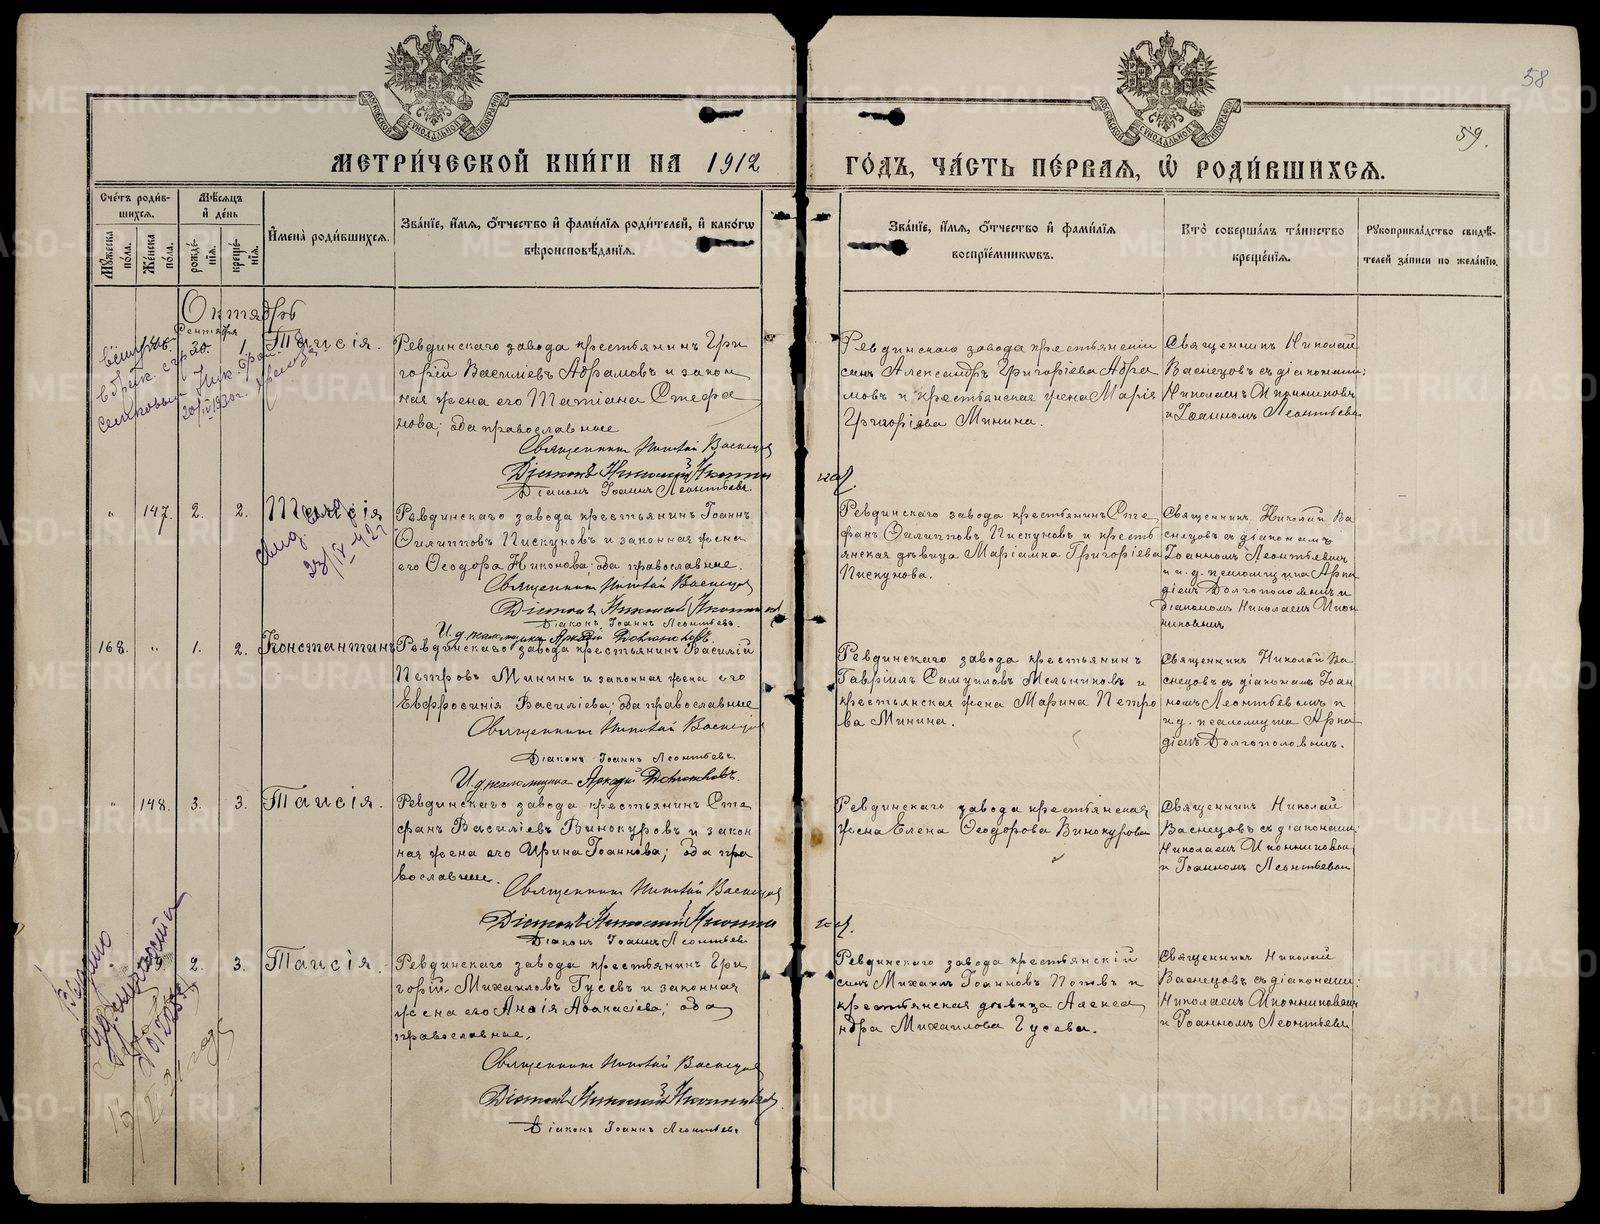 58
59.
МОСКОВСКОЙ СѴНОДАЛЬНОЙ ТИПОГРАФІИ
МОСКОВСКОЙ СѴНОДАЛЬНОЙ ТИПОГРАФІИ
МЕТРИ́ЧЕСКОЙ КНИ́ГИ НА 1912
ГО́ДЪ, ЧА́СТЬ ПЕ́РВАЯ, Ѡ҆ РОДИ́ВШИХСЯ.
Сче́тъ роди́в-
шихся.
Мꙋ́жеска
по́ла.
Же́нска
по́ла.
Мѣ́сяцъ
и҆ де́нь
рожде́-
нїя.
креще́-
нїя.
И҆мена̀ роди́вшихся.
Зва́нїе, и҆́мя, о҆́тчество и҆ фами́лїя роди́телей, и҆ како́гѡ
вѣроисповѣ́данїя.
Зва́нїе, и҆́мя, о҆́тчество и҆ фами́лїя
воспрїе́мникѡвъ.
Кто̀ соверша́лъ та́инство
креще́нїя.
Рꙋкоприкла́дство свидѣ́-
телей за́писи по жела́нїю.
Октябрь
Сентября
146. 30. 1. Таисія.
Ревдинскаго завода крестьянинъ Гри
горій Василіевъ Абрамовъ и закон
ная жена его Татіана Стефа
нова; оба православные
Священникъ Николай Васнецов
Діаконъ Николай Иконни
Діаконъ Іоаннъ Леонтьевъ.
Ревдинскаго завода крестьянскій
сынъ Александръ Григоріевъ Абра
мовъ и крестьянская жена Марія
Григоріева Минина.
Священникъ Николай
Васнецовъ съ діаконами:
Николаемъ Иконниковымъ
и Іоанномъ Леонтьевы
20/IV 1930 г.
" 147. 2. 2. Таисія
Ревдинскаго завода крестьянинъ Іоаннъ
Филипповъ Пискуновъ и законная жена
его Ѳеодора Никонова; оба православные.
Священникъ Николай Васнецов
Діаконъ Николай Иконников
Діаконъ Іоаннъ Леонтьевъ.
И. д. псаломщика Аркадій Долгополовъ.
Ревдинскаго завода крестьянинъ Сте
фанъ Филипповъ Пискуновъ и кресть
янская дѣвица Маріамна Григоріева
Пискунова.
Священникъ Николай Ва
снецовъ съ діакономъ
Іоанномъ Леонтьевымъ
и и. д. псаломщика Арка
діемъ Долгополовымъ и
діакономъ Николаемъ Икон
никовымъ
168. " 1. 2. Константинъ
Ревдинскаго завода крестьянинъ Василій
Петровъ Мининъ и законная жена его
Евфросинія Василіева; оба православные
Священникъ Николай Васнецов
Діаконъ Іоаннъ Леонтьевъ.
И. д. псаломщика Аркадій Долгополовъ.
Ревдинскаго завода крестьянинъ
Гавріилъ Самуиловъ Мельниковъ и
крестьянская жена Марина Петро
ва Минина.
Священникъ Николай Ва
снецовъ съ діакономъ Іоан
номъ Леонтьевымъ и
и. д. псаломщика Арка
діемъ Долгополовымъ.
" 148. 3. 3. Таисія.
Ревдинскаго завода крестьянинъ Сте
фанъ Василіевъ Винокуровъ и закон
ная жена его Ирина Іоаннова; оба пра
вославные.
Священникъ Николай Васнецов
Діаконъ Николай Иконни
Діаконъ Іоаннъ Леонтьев
Ревдинскаго завода крестьянская
жена Елена Ѳеодорова Винокурова
Священникъ Николай
Васнецовъ съ діаконами:
Николаемъ Иконниковым
и Іоанномъ Леонтьевым
2. 3. Таисія.
Ревдинскаго завода крестьянинъ Гри
горій Михаиловъ Гусевъ и законная
жена его Анѳія Аѳанасіева; оба
православные.
Священникъ Николай Васнецов
Діаконъ Николай Иконников
Діаконъ Іоаннъ Леонтьевъ
Ревдинскаго завода крестьянскій
сынъ Михаилъ Іоанновъ Потѣвъ и
крестьянская дѣвица Алекса
ндра Михаилова Гусева.
Священникъ Николай
Васнецовъ съ діаконами:
Николаемъ Иконниковым
и Іоанномъ Леонтьевым
METRIKI.GASO-URAL.RU